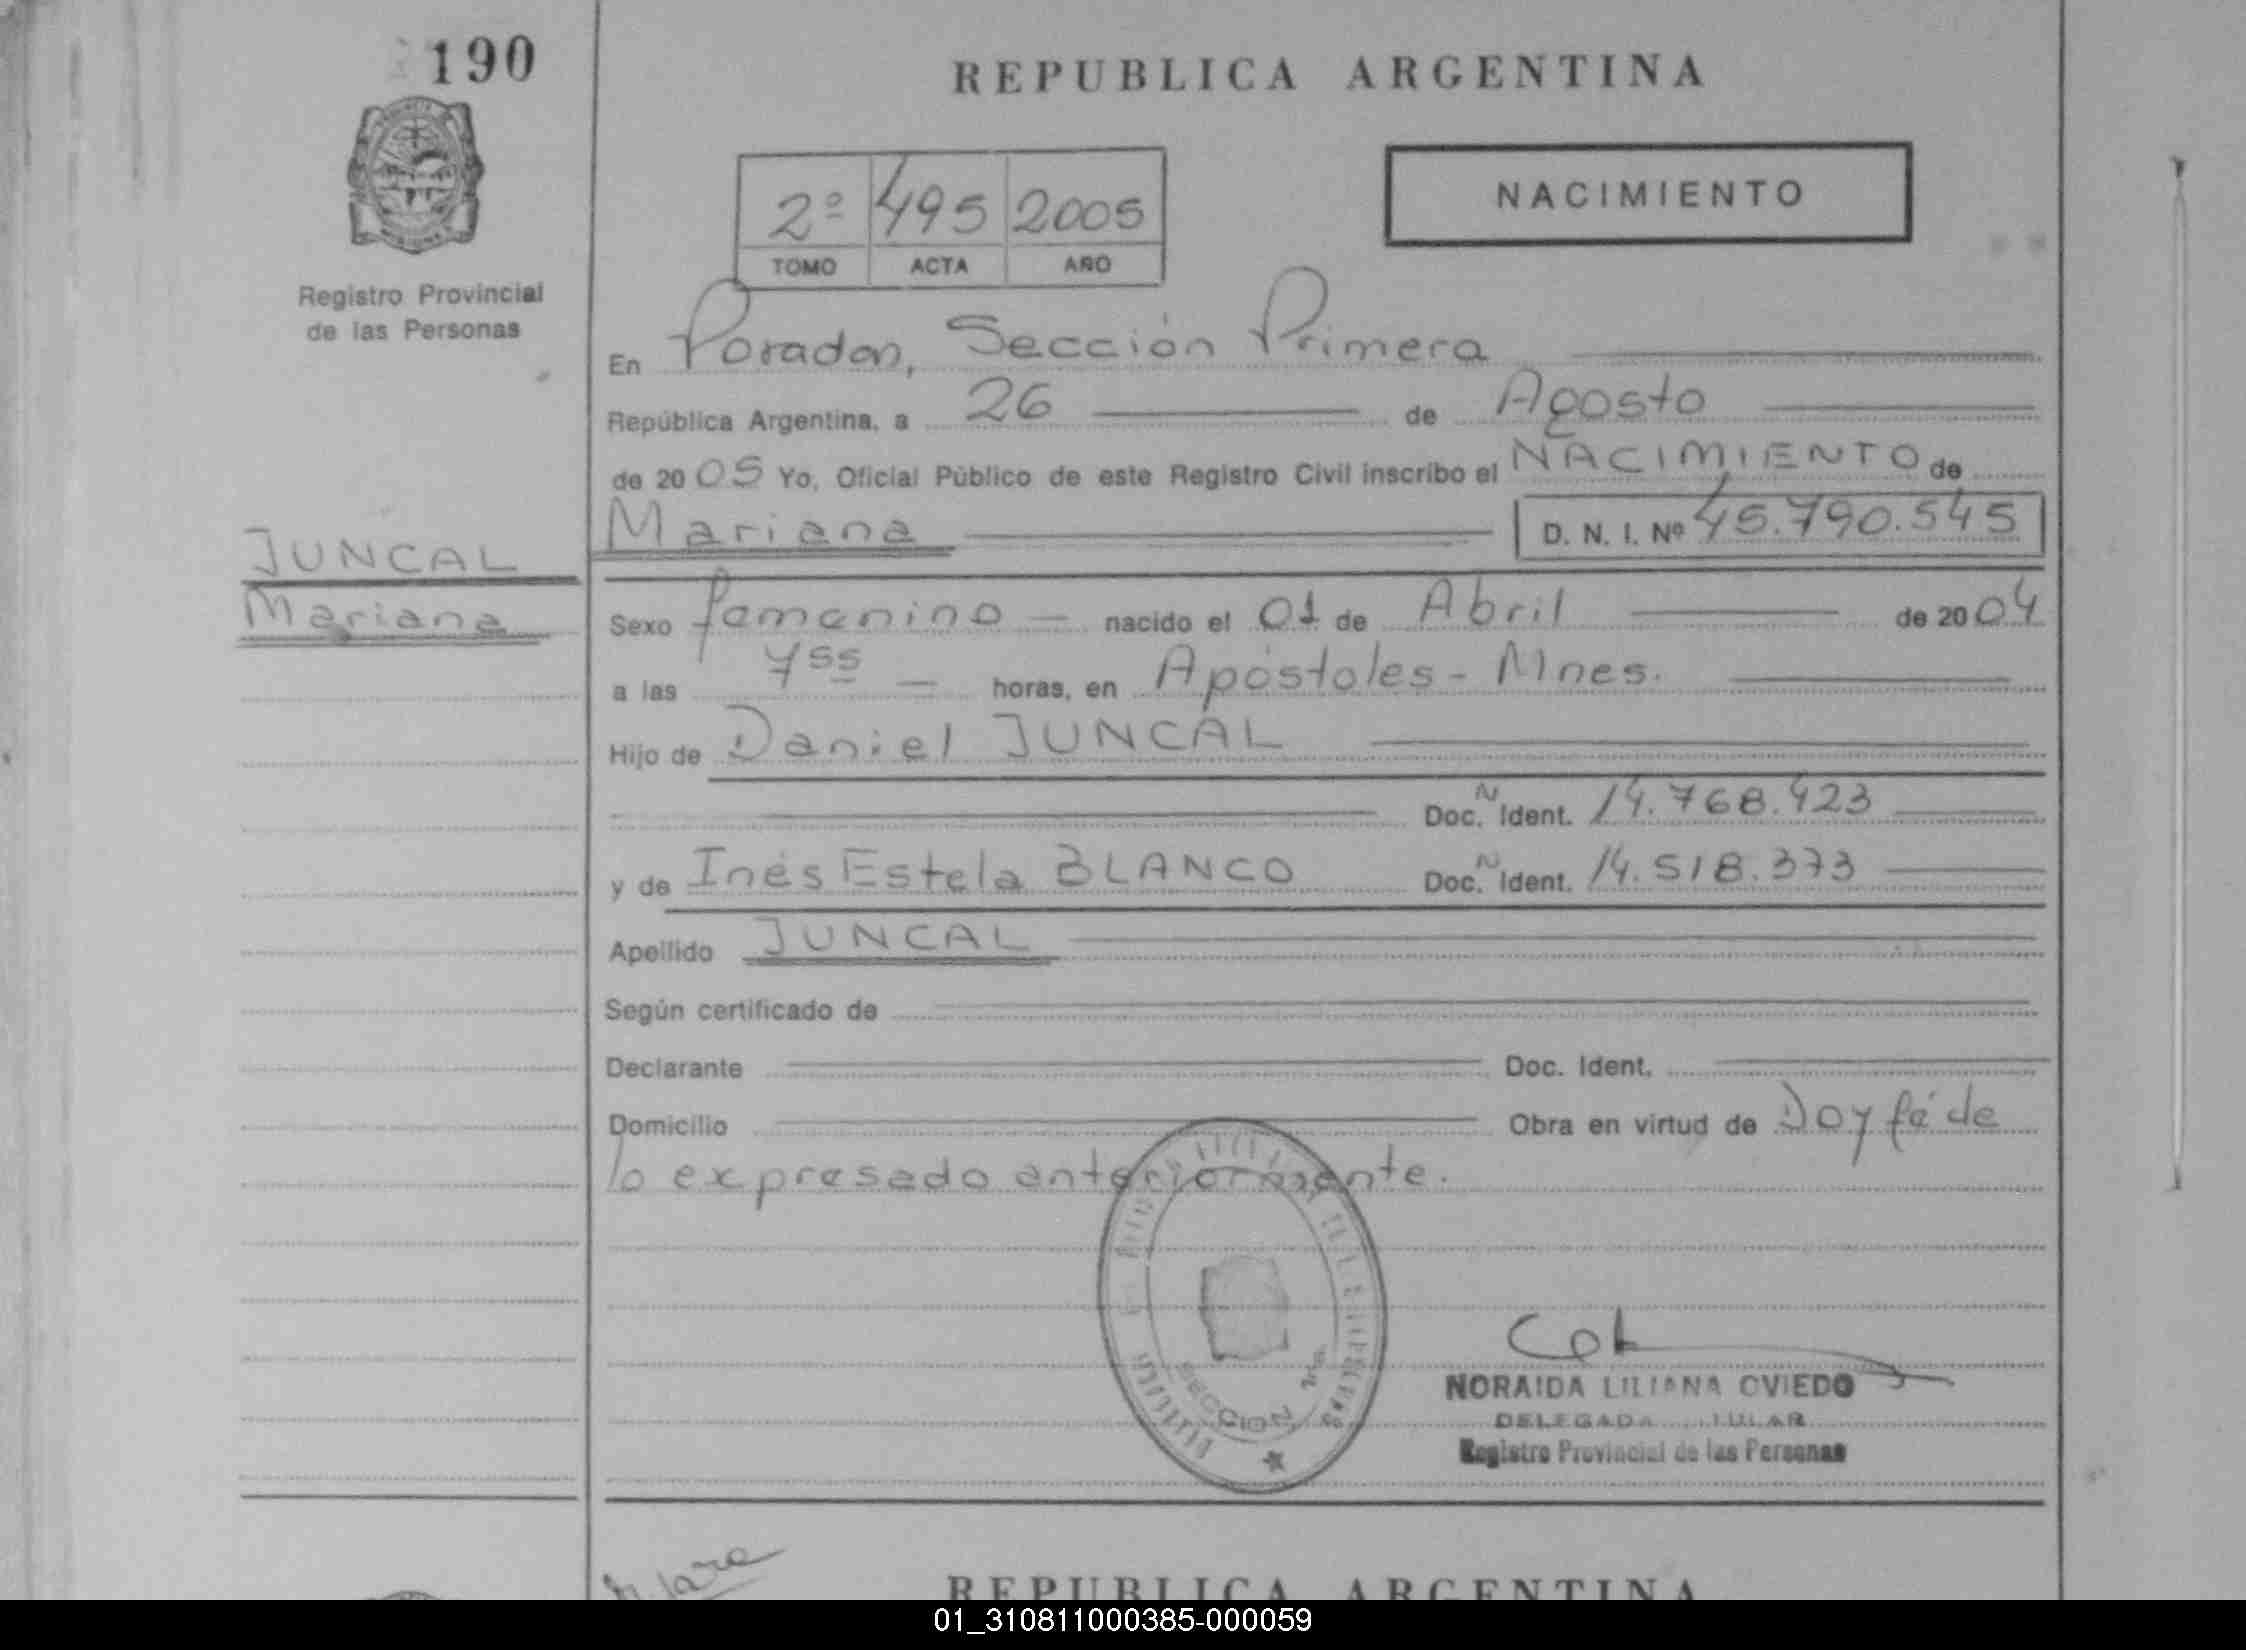 190
REPUBLICA ARGENTINA
NACIMIENTO
2º 495 2005
TOMO ACTA AÑO
Registro Provincial
de las Personas
En Posadas, Sección Primera
República Argentina, a 26 de Agosto
de 2005 Yo, Oficial Público de este Registro Civil inscribo el NACIMIENTO de
Mariana D. N. I. Nº 45.790.545
JUNCAL
Mariana
Sexo femenino nacido el 01 de Abril de 2004
a las 7 55 horas, en Apóstoles - Mnes.
Hijo de Daniel JUNCAL
Doc. N Ident. 14.768.423
y de Inés Estela BLANCO Doc. N Ident. 14.518.373
Apellido JUNCAL
Según certificado de
Declarante Doc. Ident.
Domicilio Obra en virtud de Doy fé de
lo expresado anteriormente.
SECCION 1ra
NORAIDA LILIANA OVIEDO
DELEGADA TITULAR
Registro Provincial de las Personas
REPUBLICA ARGENTINA
01_310811000385-000059